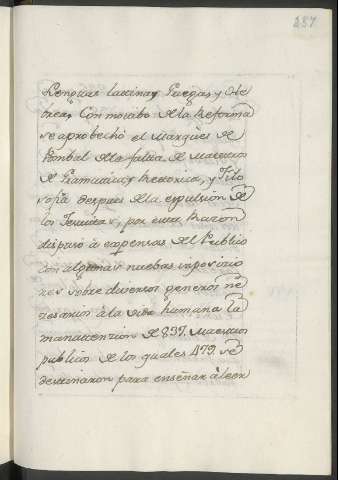 237
Lenguas latinas, Griegas, y Ebe
breas. Con motibo de la Reforma
se aprobechò el Marqùes de
Ponbal de la falta de Maestros
de Gramatica, Rettorica, y Filo
sofia despues de la expulsion de
los Jesuitas, por cuia Razon
dispuso à expensas del Publico
con algunas nuebas imposicio
nes sobre diversos generos ne
zesarios à la vida humana la
manuttenzion de 837. Maestros
publicos de los quales 479. se
destinaron para enseñar à leer